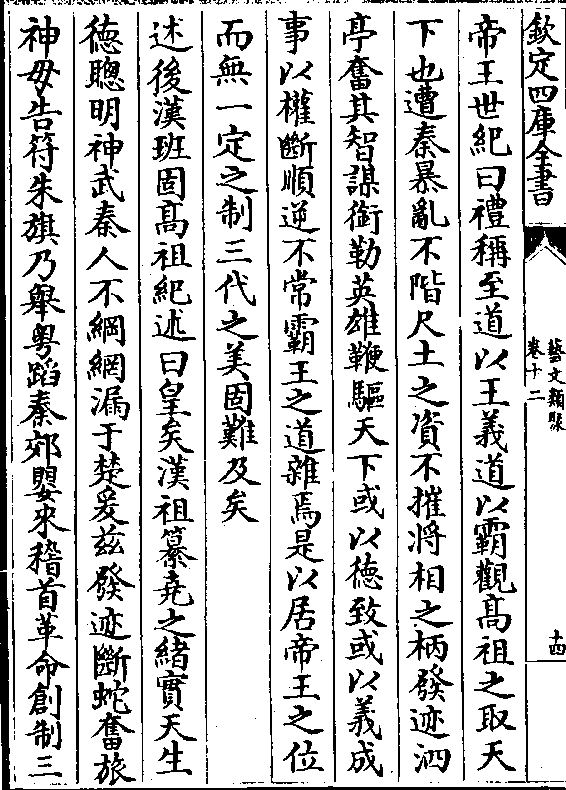 欽定四庫全書
藝文類聚
卷十二
十四
帝王世紀曰禮稱至道以王義道以霸觀高祖之取天
下也遭秦暴亂不階尺土之資不摧將相之柄發迹泗
亭奮其智謀銜勒英雄鞭驅天下或以徳致或以義成
事以權斷順逆不常霸王之道雜焉是以居帝王之位
而無一定之制三代之美固難及矣
述後漢班固高祖紀述曰皇矣漢祖纂堯之緒實天生
徳聰明神武秦人不綱網漏于楚爰兹發迹斷蛇奮旅
神毋告符朱旗乃舉粤蹈秦郊嬰來稽首革命創制三